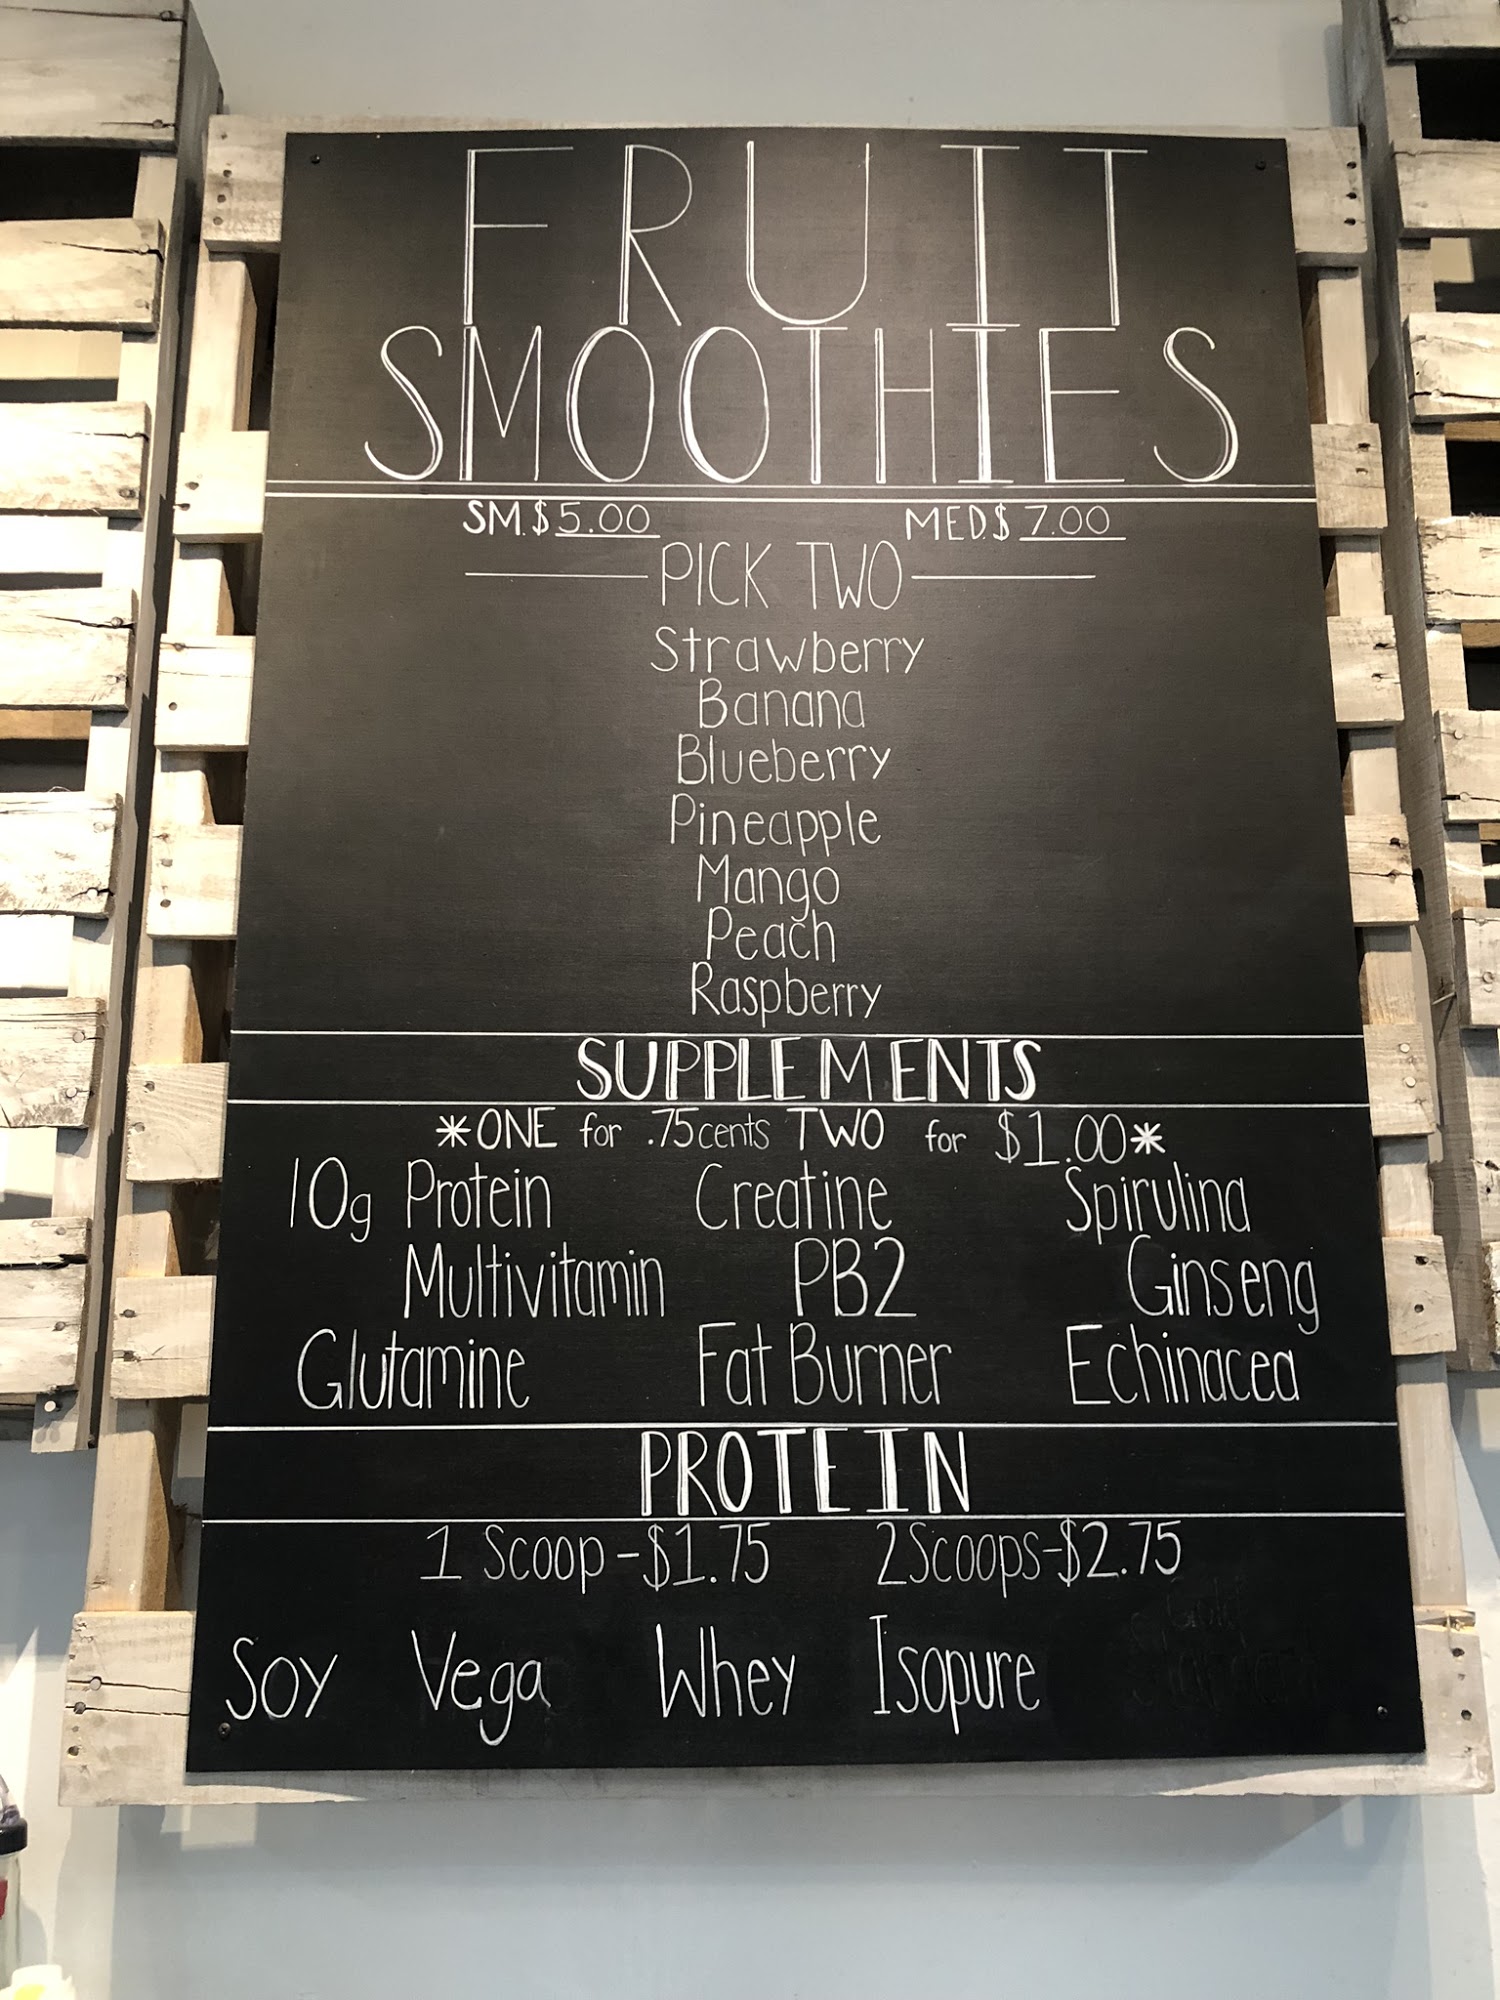 FRUIT
SMOOTHIES
SM.$5.00 MED.$7.00
PICK TWO
Strawberry
Banana
Blueberry
Pineapple
Mango
Peach
Raspberry
SUPPLEMENTS
*ONE for .75cents TWO for $1.00*
10g Protein Creatine Spirulina
Multivitamin PB2 Ginseng
Glutamine Fat Burner Echinacea
PROTEIN
1 Scoop-$1.75 2Scoops-$2.75
Soy Vega Whey Isopure